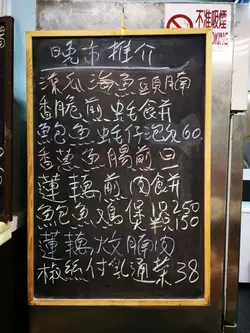 不准吸煙
OKING
晚市推介
涼瓜海魚頭腩
香脆煎蚝餅
鮑魚蚝仔泡 60
香蔥魚腸煎旦
蓮藕煎肉餅
鮑魚鸡煲 250
150
蓮藕炆腩肉
椒絲付乳通菜38